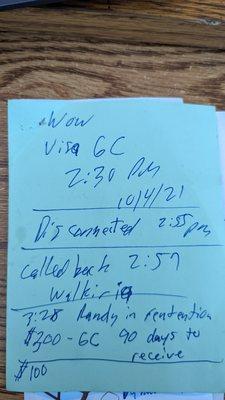 Wow
Visa GC
2:30 PM
10/4/21
Disconnected 2:55 pm
Called back 2:57
Walkiria
3:28 Randy in rentention
$300 - GC 90 days to
receive
$100